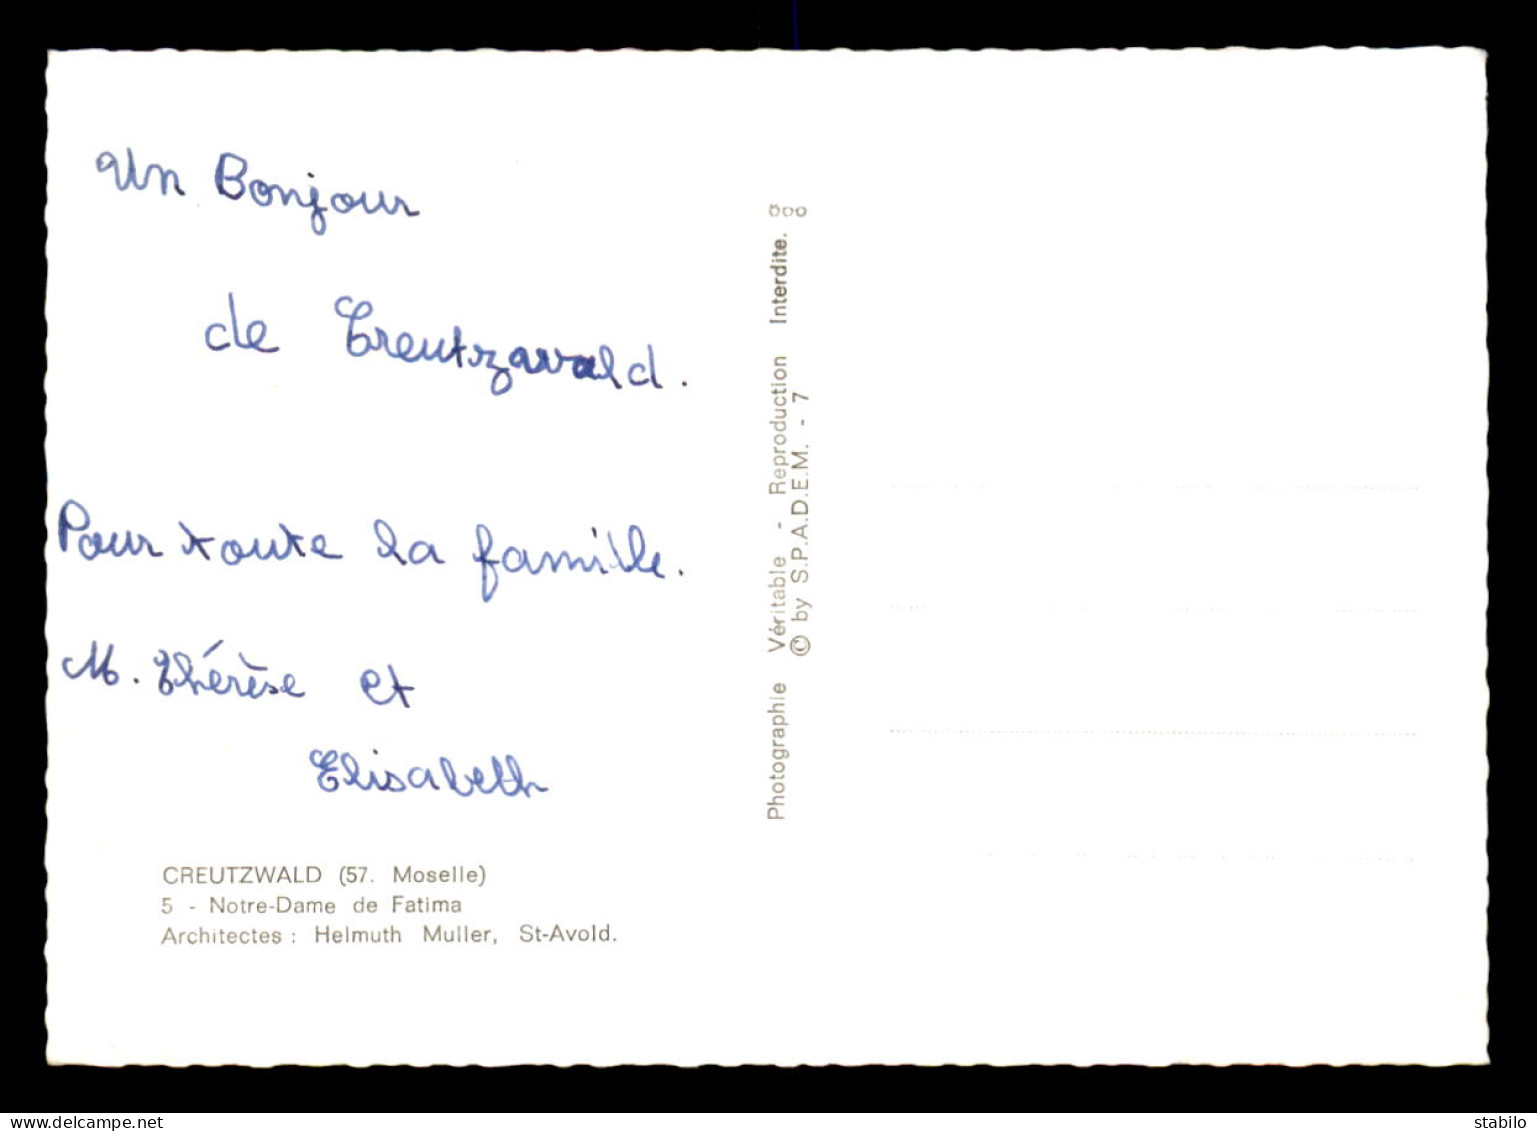 Un Bonjour
de Creutzwald.
Pour toute la famille.
M. Thérèse et
Elisabeth
CREUTZWALD (57. Moselle)
5 - Notre-Dame de Fatima
Architectes : Helmuth Muller, St-Avold.
Photographie Véritable - Reproduction Interdite.
© by S.P.A.D.E.M. - 7
www.delcampe.net
stabilo